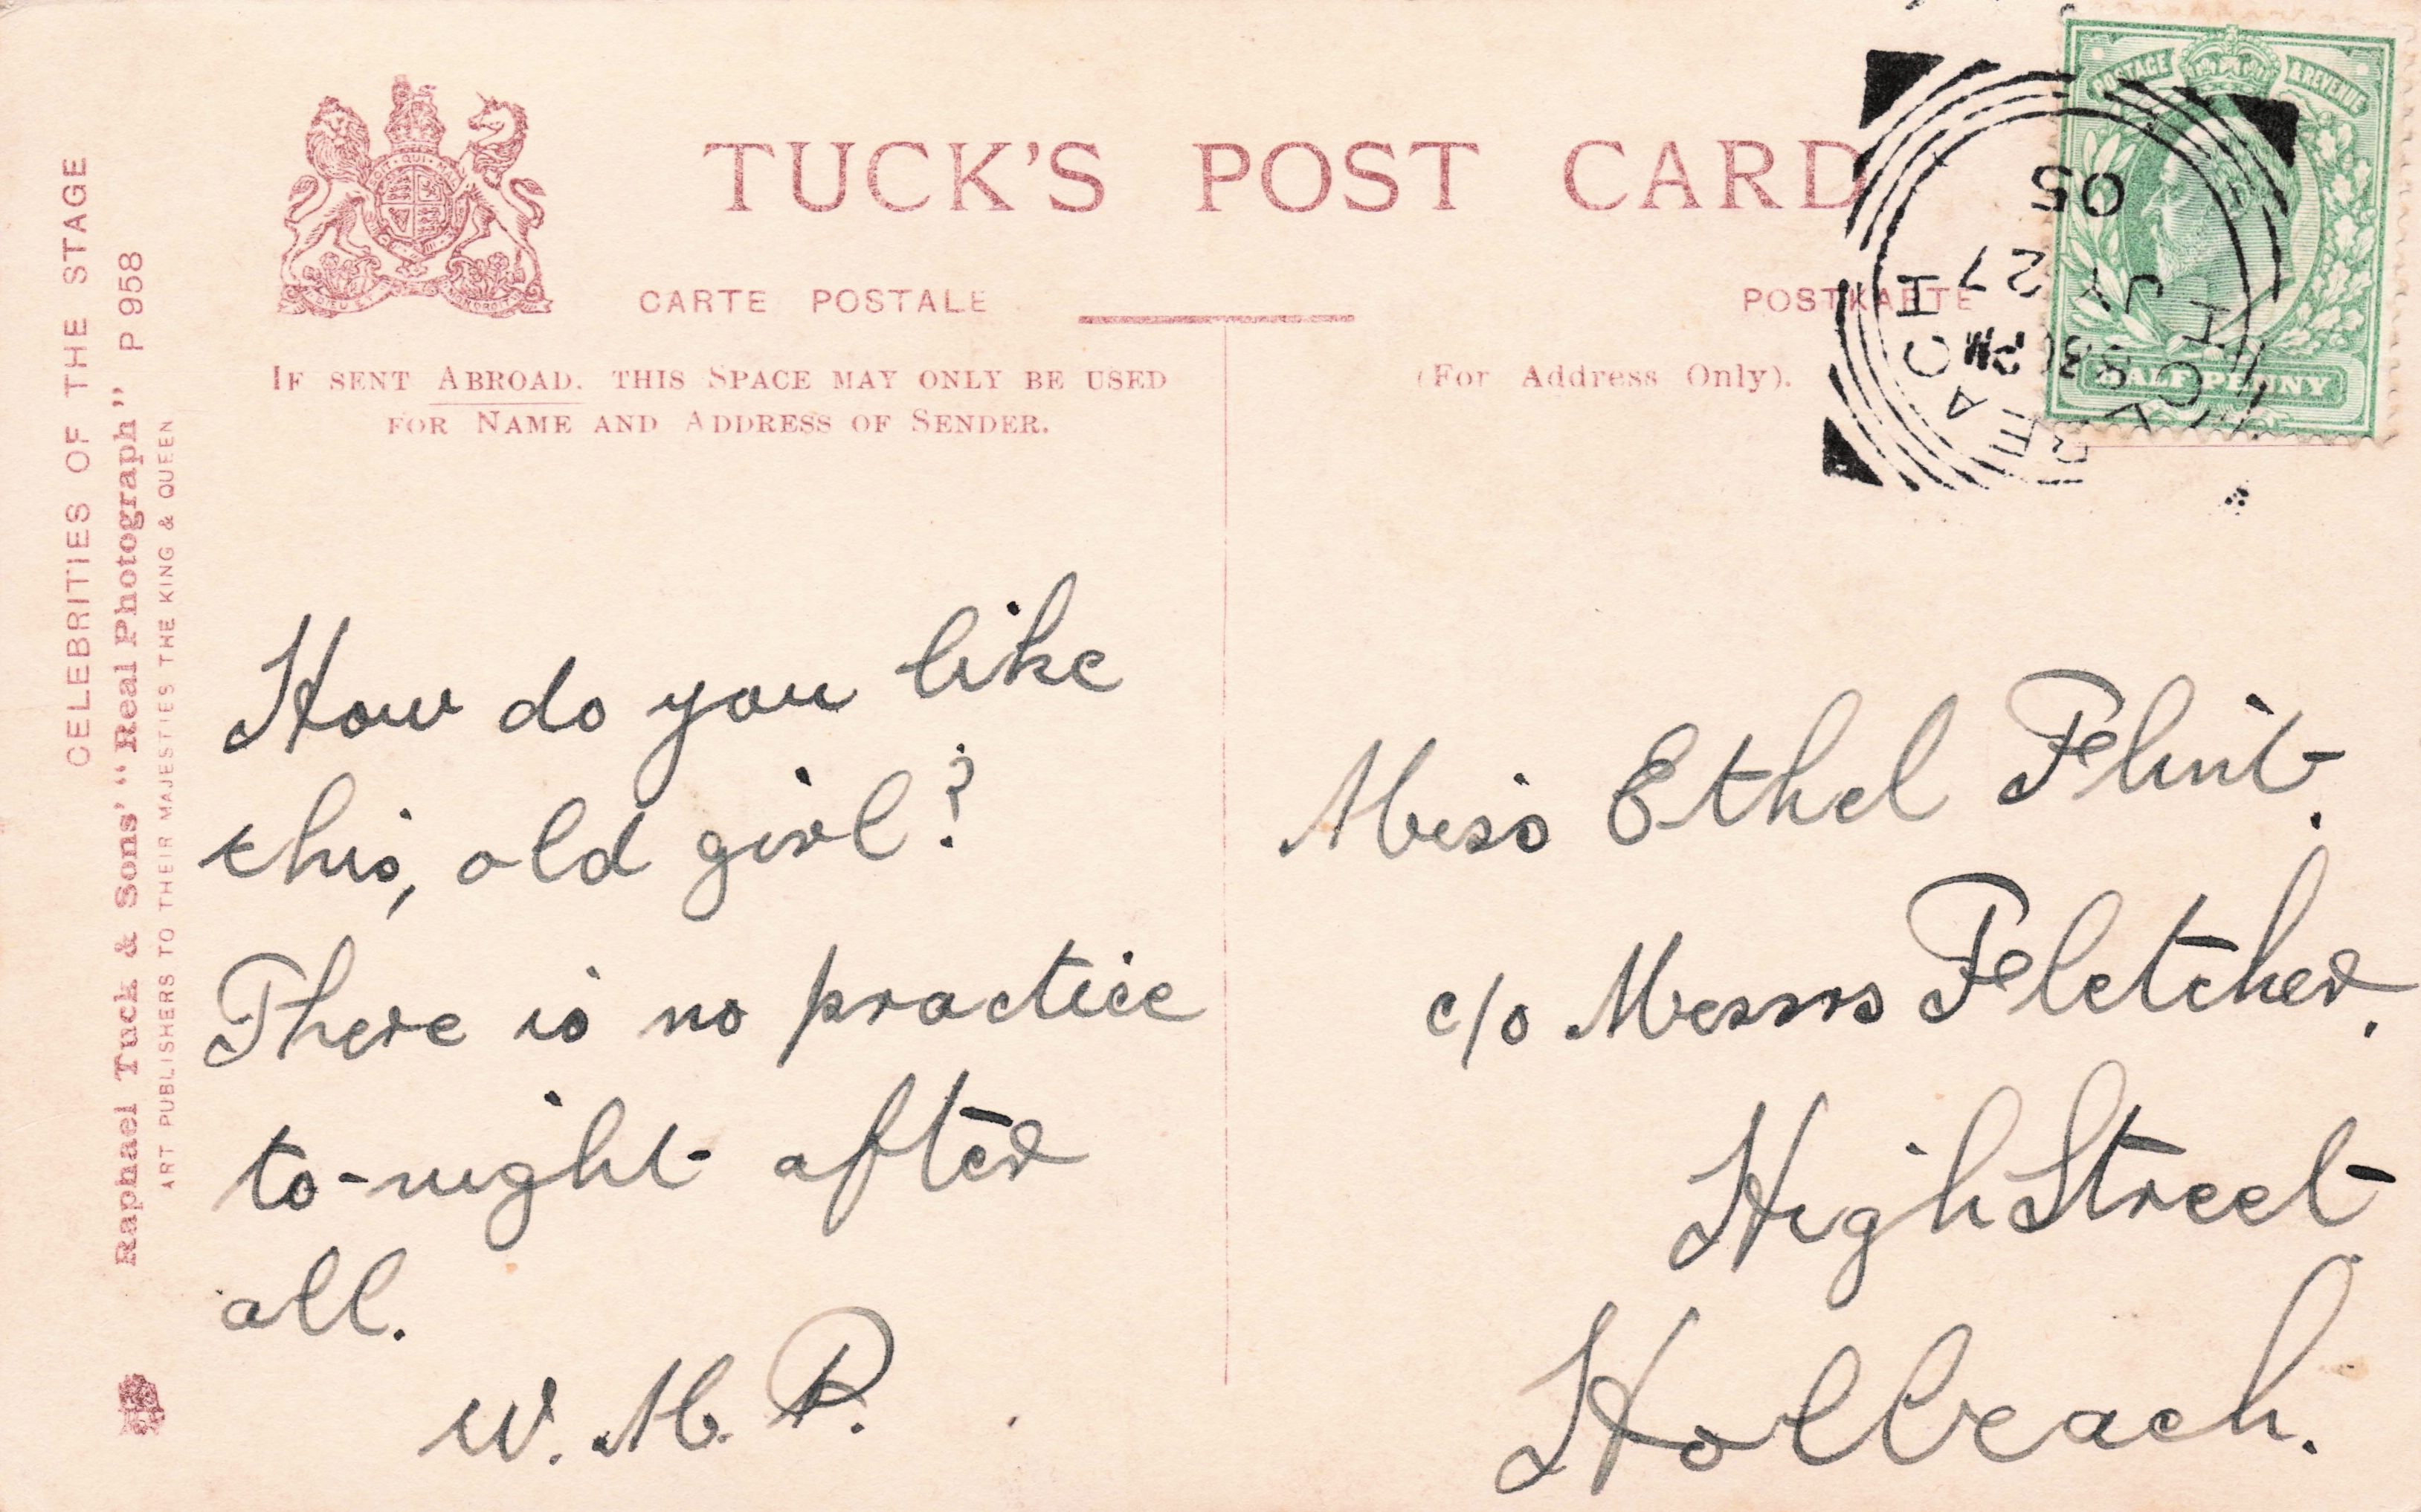 TUCK'S POST CARD
CARTE POSTALE
POSTKARTE
IF SENT ABROAD, THIS SPACE MAY ONLY BE USED
FOR NAME AND ADDRESS OF SENDER.
(For Address Only).
POSTAGE & REVENUE
HALFPENNY
BEACH
8 30 PM
JY 27
05
CELEBRITIES OF THE STAGE
Raphael Tuck & Sons' "Real Photograph" P 958
ART PUBLISHERS TO THEIR MAJESTIES THE KING & QUEEN
How do you like
this, old girl?
There is no practice
to-night after
all.
W. M. P.
Miss Ethel Flint.
c/o Messrs Fletcher,
High Street
Holbeach.